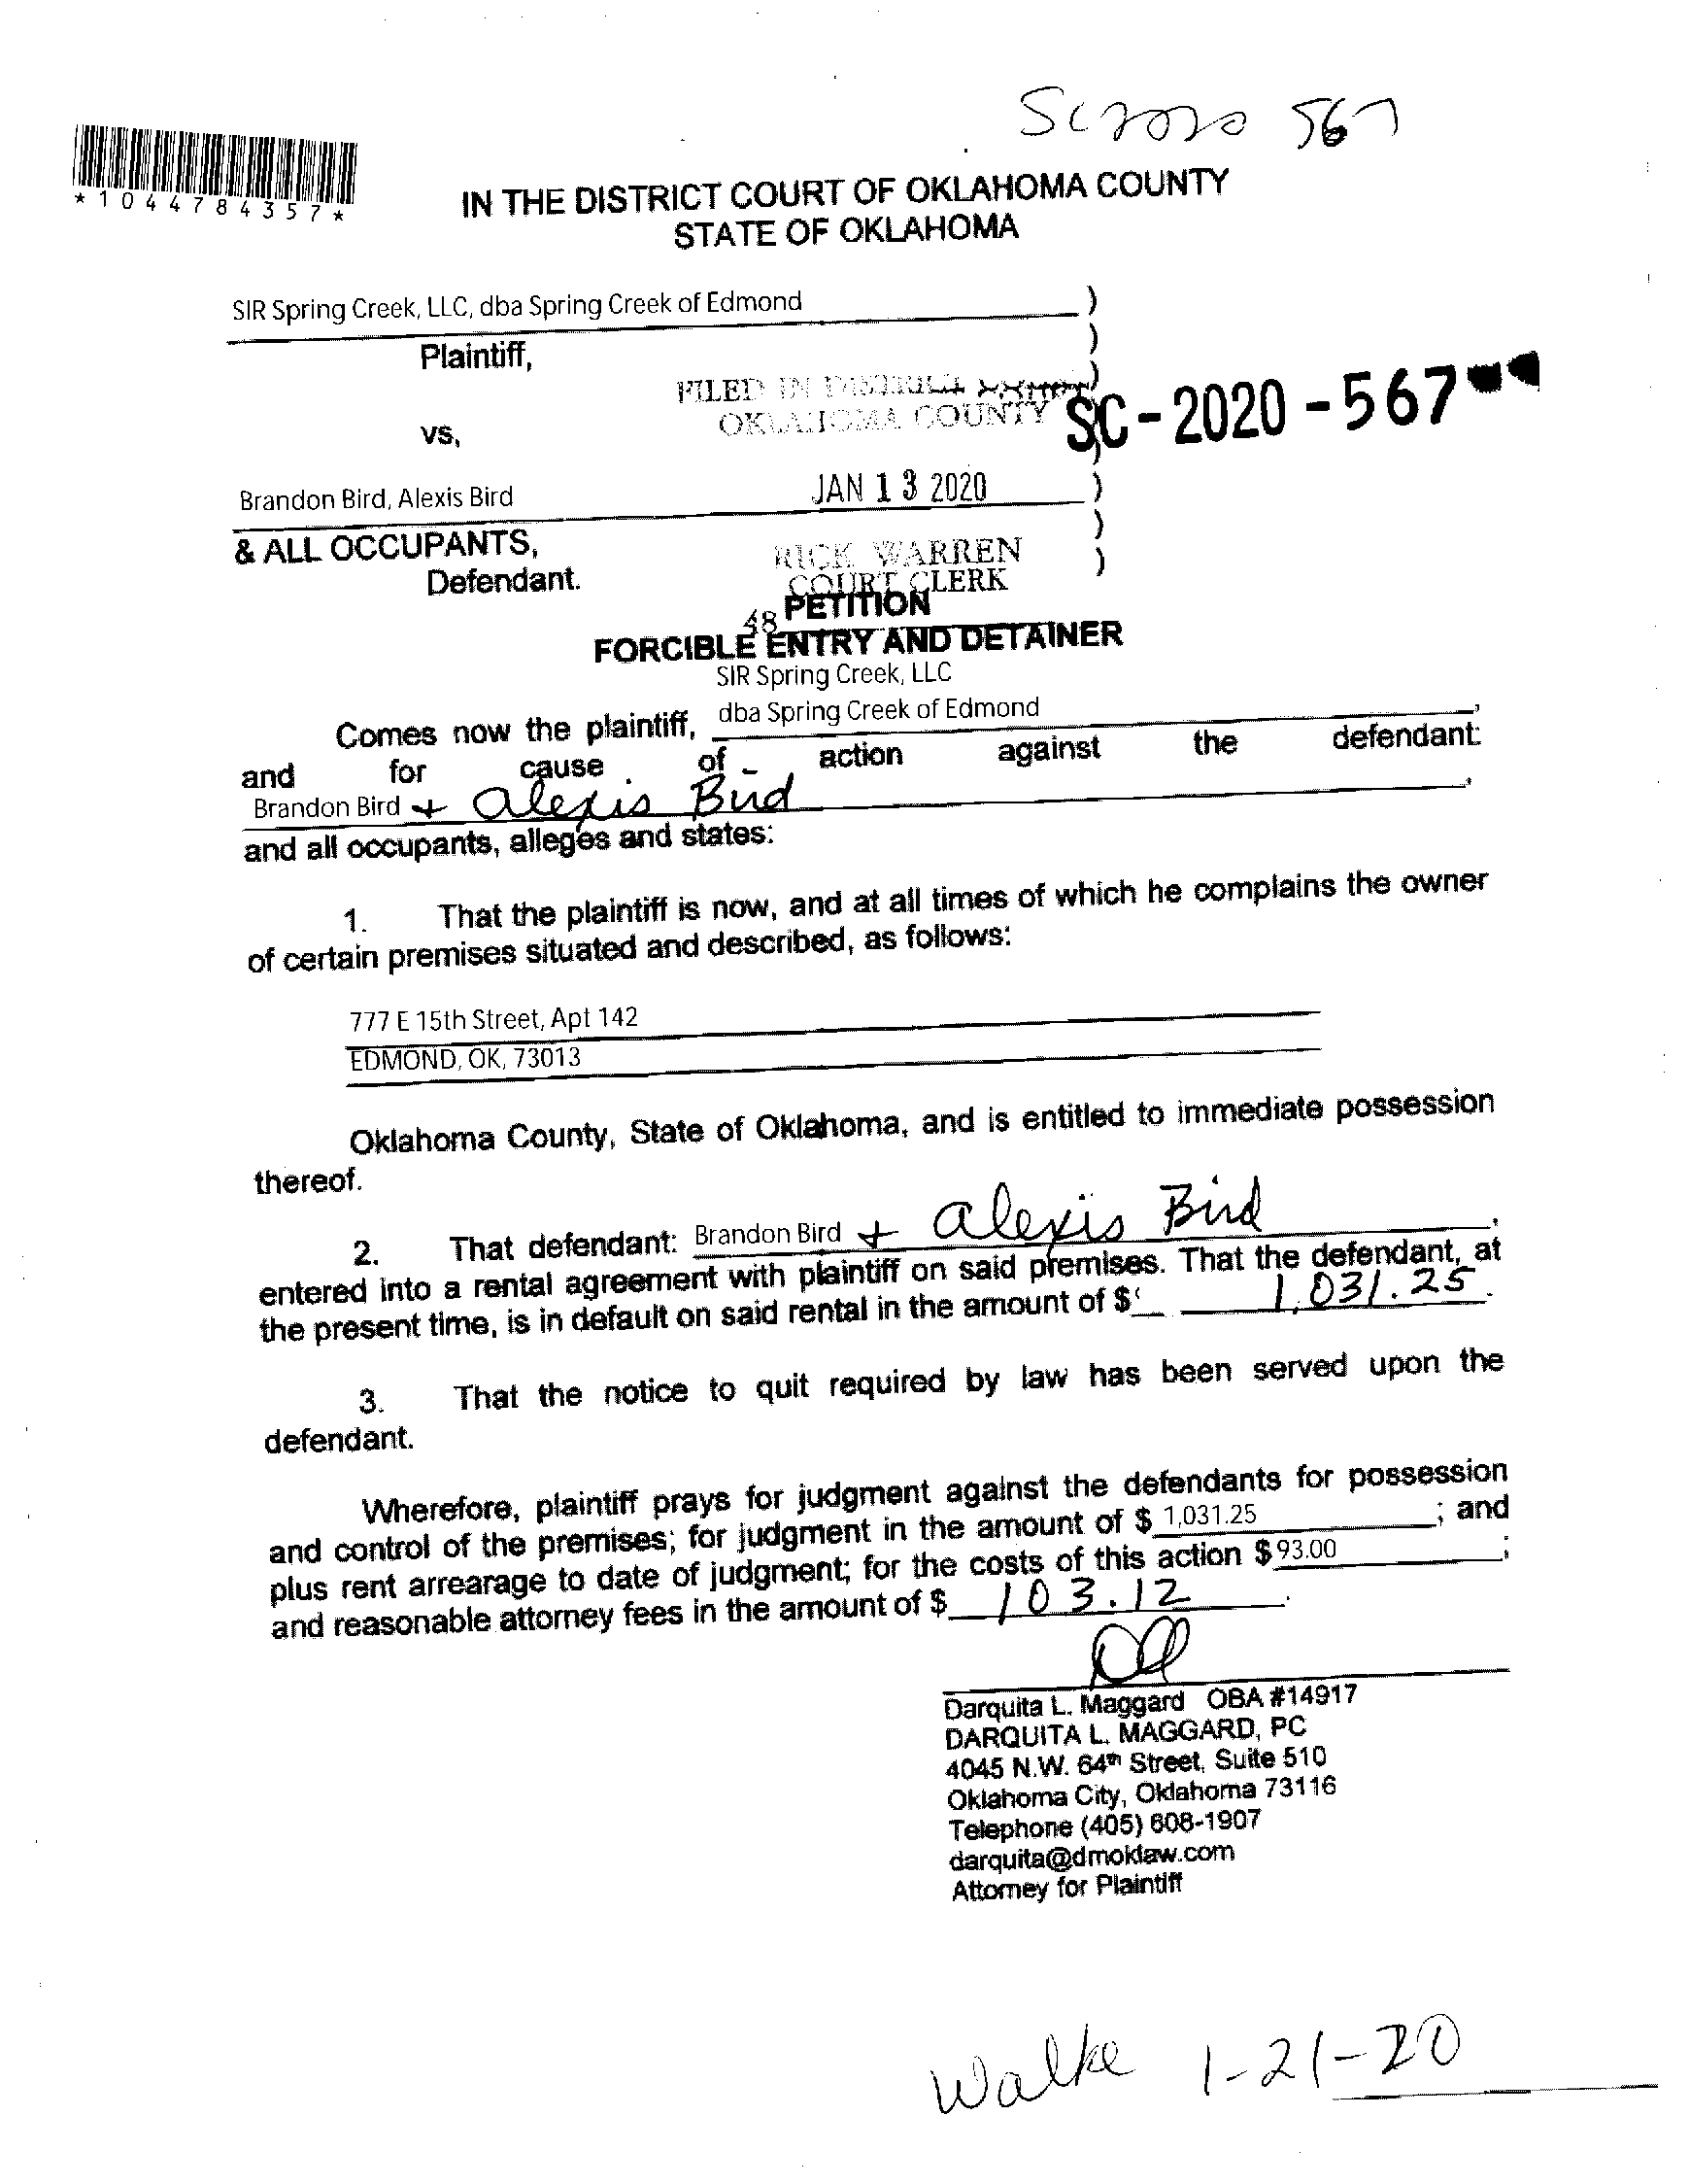 SC2020 567
*1044784357*
IN THE DISTRICT COURT OF OKLAHOMA COUNTY
STATE OF OKLAHOMA
SIR Spring Creek, LLC, dba Spring Creek of Edmond )
Plaintiff, )
FILED IN DISTRICT COURT )
OKLAHOMA COUNTY SC-2020-567
vs,
JAN 13 2020 )
Brandon Bird, Alexis Bird
)
& ALL OCCUPANTS,
RICK WARREN )
Defendant.
COURT CLERK
PETITION
48
FORCIBLE ENTRY AND DETAINER
SIR Spring Creek, LLC
Comes now the plaintiff, dba Spring Creek of Edmond,
and for cause of action against the defendant:
Brandon Bird + Alexis Bird,
and all occupants, alleges and states:
1. That the plaintiff is now, and at all times of which he complains the owner
of certain premises situated and described, as follows:
777 E 15th Street, Apt 142
EDMOND, OK, 73013
Oklahoma County, State of Oklahoma, and is entitled to immediate possession
thereof.
2. That defendant: Brandon Bird + Alexis Bird,
entered into a rental agreement with plaintiff on said premises. That the defendant, at
the present time, is in default on said rental in the amount of $ 1,031.25.
3. That the notice to quit required by law has been served upon the
defendant.
Wherefore, plaintiff prays for judgment against the defendants for possession
and control of the premises; for judgment in the amount of $ 1,031.25; and
plus rent arrearage to date of judgment; for the costs of this action $ 93.00;
and reasonable attorney fees in the amount of $ 103.12.
Darquita L. Maggard OBA #14917
DARQUITA L. MAGGARD, PC
4045 N.W. 64th Street, Suite 510
Oklahoma City, Oklahoma 73116
Telephone (405) 608-1907
darquita@dmoklaw.com
Attorney for Plaintiff
Walke 1-21-20